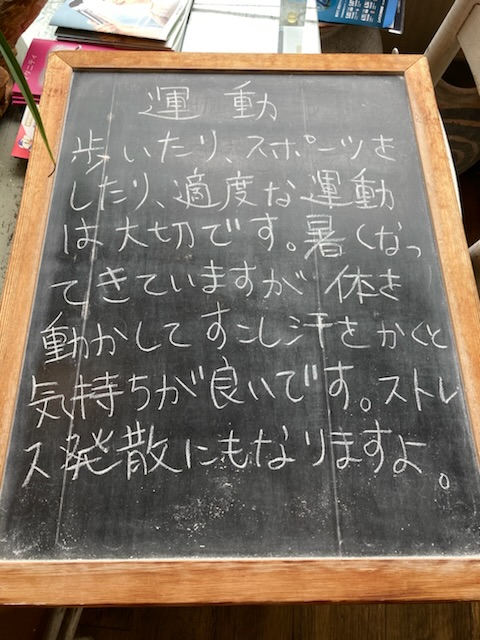 運動
歩いたり、スポーツを
したり、適度な運動
は大切です。暑くなっ
てきていますが 体を
動かしてすこし汗をかくと
気持ちが良いです。ストレ
ス発散にもなりますよ。